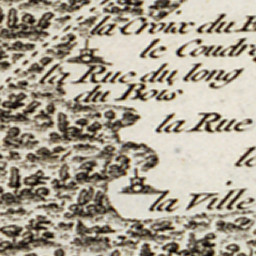 la Croix du
le Coudr
la Rue du long
du Bois
la Rue
le
la Ville